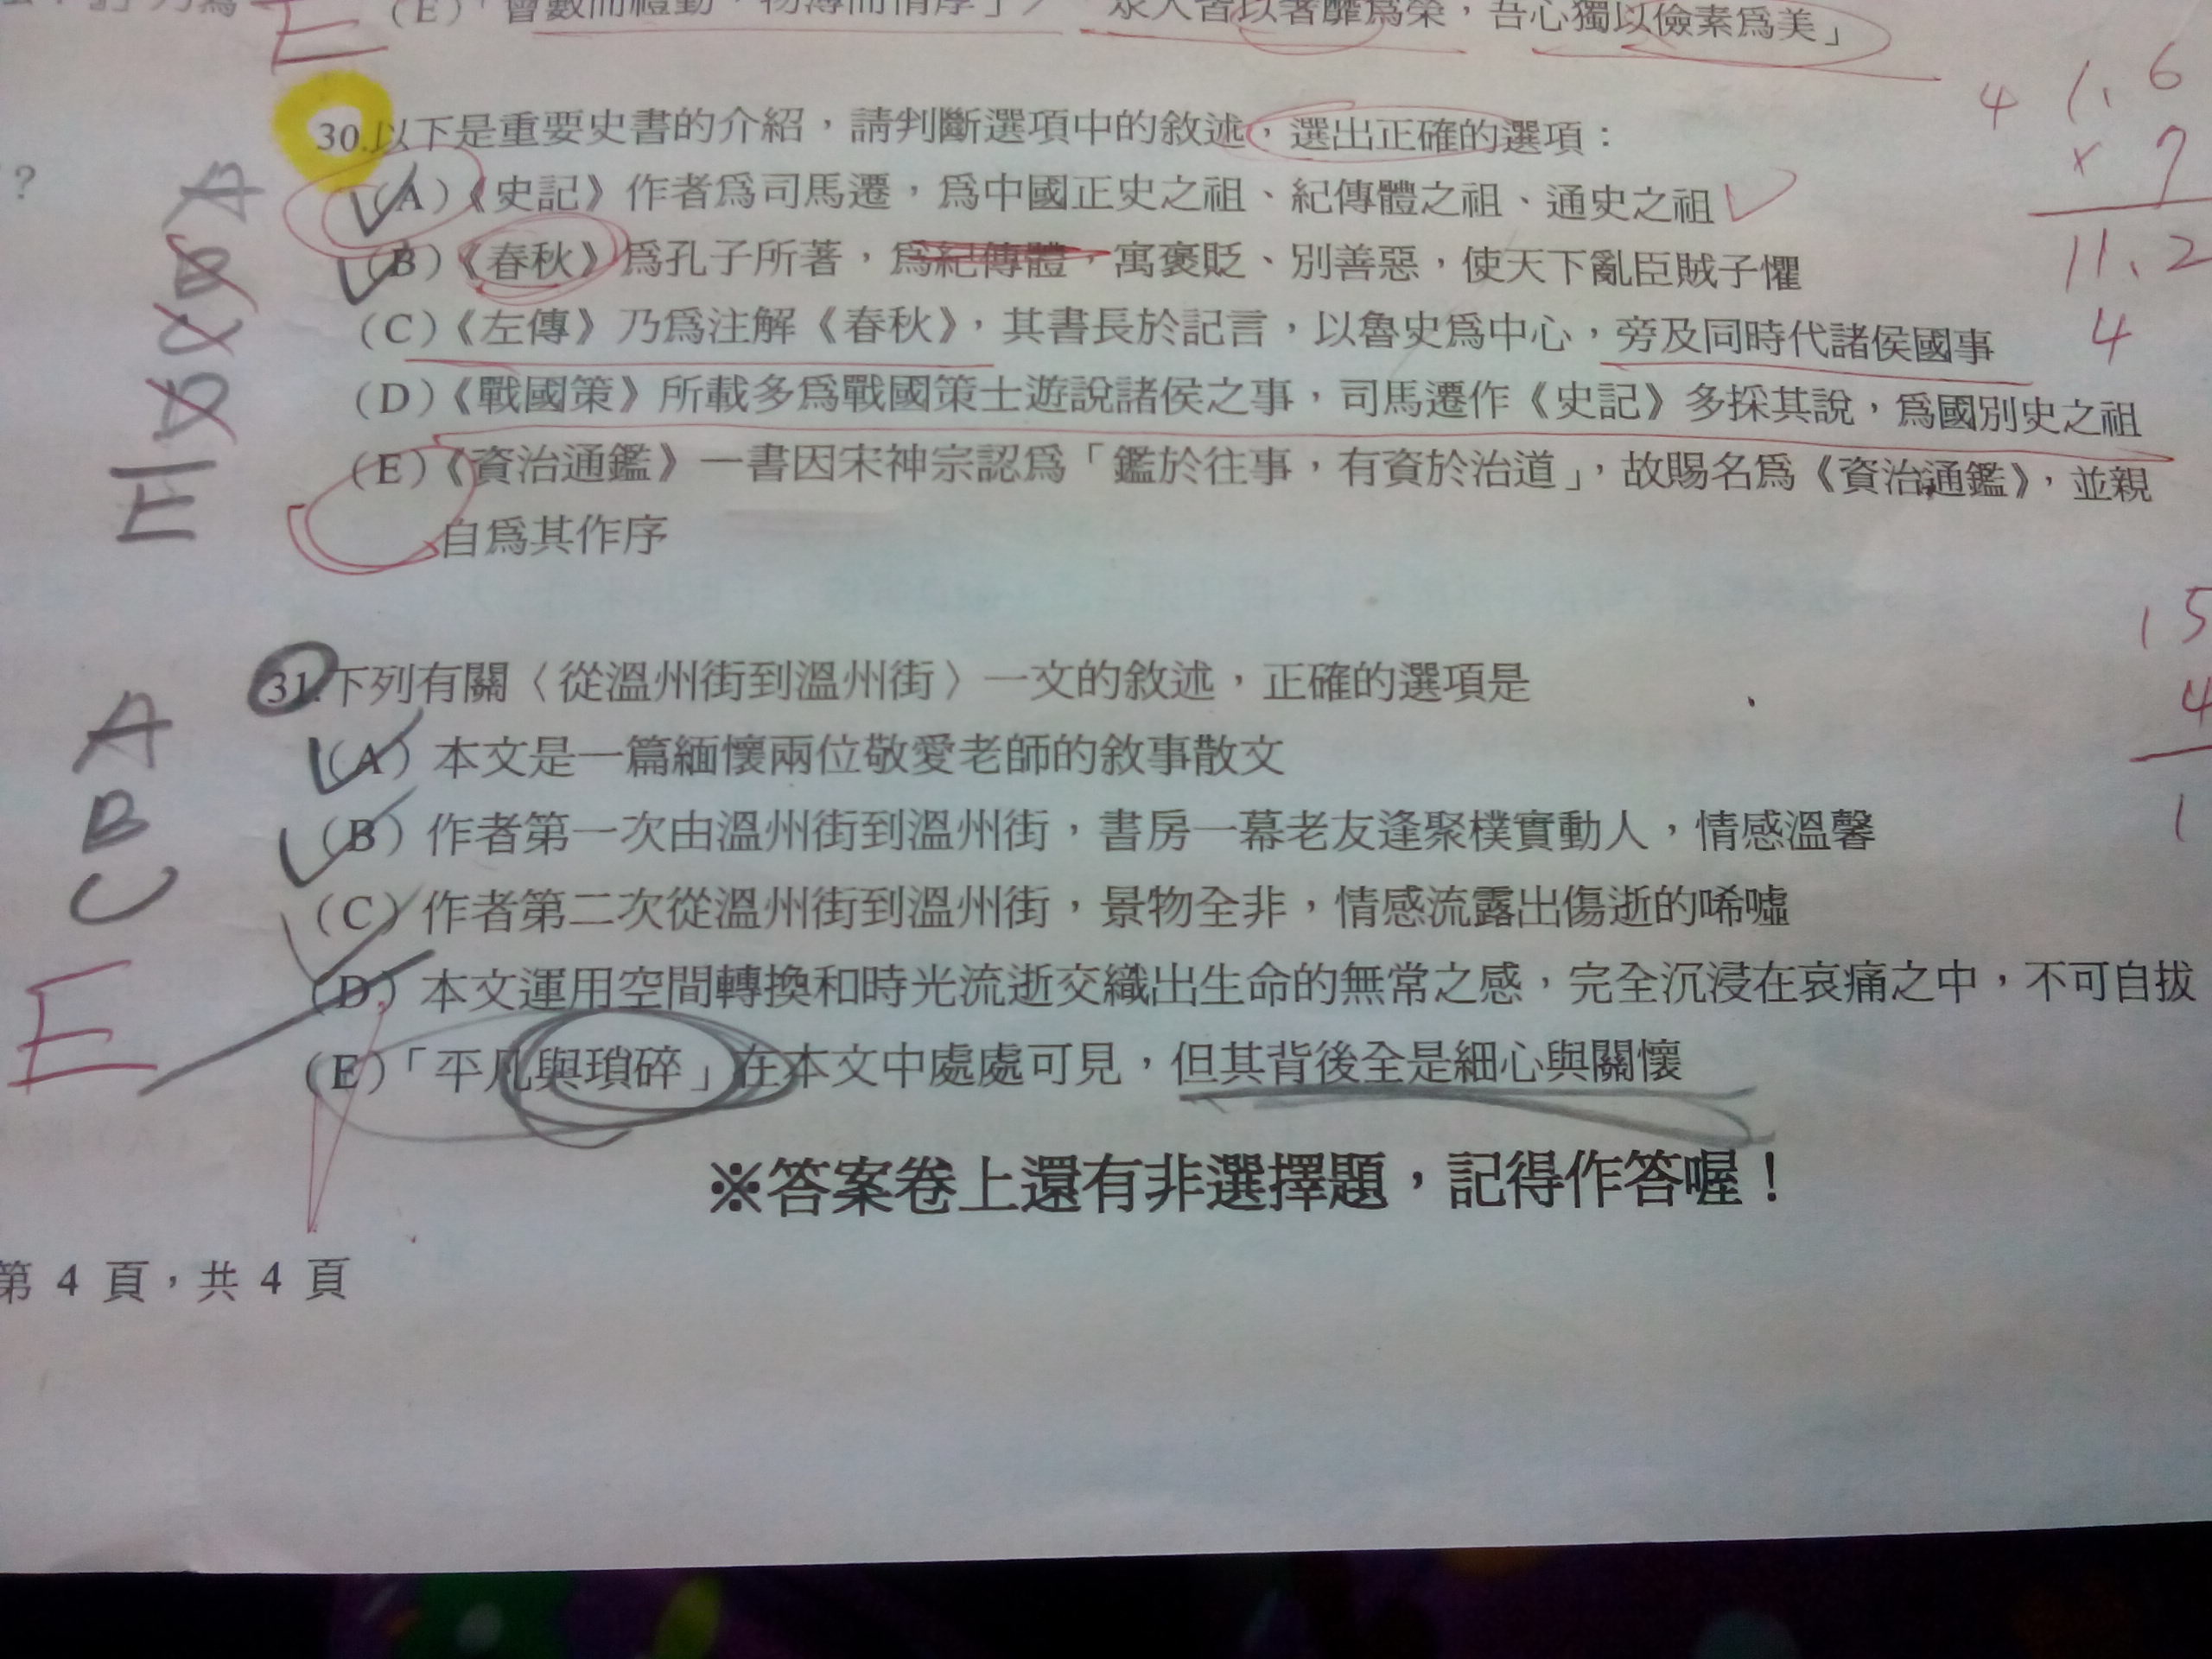 (E)「會數而禮勤，物薄而情厚」／「眾人皆以奢靡為榮，吾心獨以儉素為美」
E
30.以下是重要史書的介紹，請判斷選項中的敘述，選出正確的選項：
(A)《史記》作者為司馬遷，為中國正史之祖、紀傳體之祖、通史之祖
(B)《春秋》為孔子所著，為紀傳體，寓褒貶、別善惡，使天下亂臣賊子懼
(C)《左傳》乃為注解《春秋》，其書長於記言，以魯史為中心，旁及同時代諸侯國事
(D)《戰國策》所載多為戰國策士遊說諸侯之事，司馬遷作《史記》多採其說，為國別史之祖
(E)《資治通鑑》一書因宋神宗認為「鑑於往事，有資於治道」，故賜名為《資治通鑑》，並親
自為其作序
A
B
C
D
E
31.下列有關〈從溫州街到溫州街〉一文的敘述，正確的選項是
(A) 本文是一篇緬懷兩位敬愛老師的敘事散文
(B) 作者第一次由溫州街到溫州街，書房一幕老友逢聚樸實動人，情感溫馨
(C) 作者第二次從溫州街到溫州街，景物全非，情感流露出傷逝的唏噓
(D) 本文運用空間轉換和時光流逝交織出生命的無常之感，完全沉浸在哀痛之中，不可自拔
(E)「平凡與瑣碎」在本文中處處可見，但其背後全是細心與關懷
A
B
C
E
※答案卷上還有非選擇題，記得作答喔！
第 4 頁，共 4 頁
4 1.6
× 7
11.2
4
15
4
1